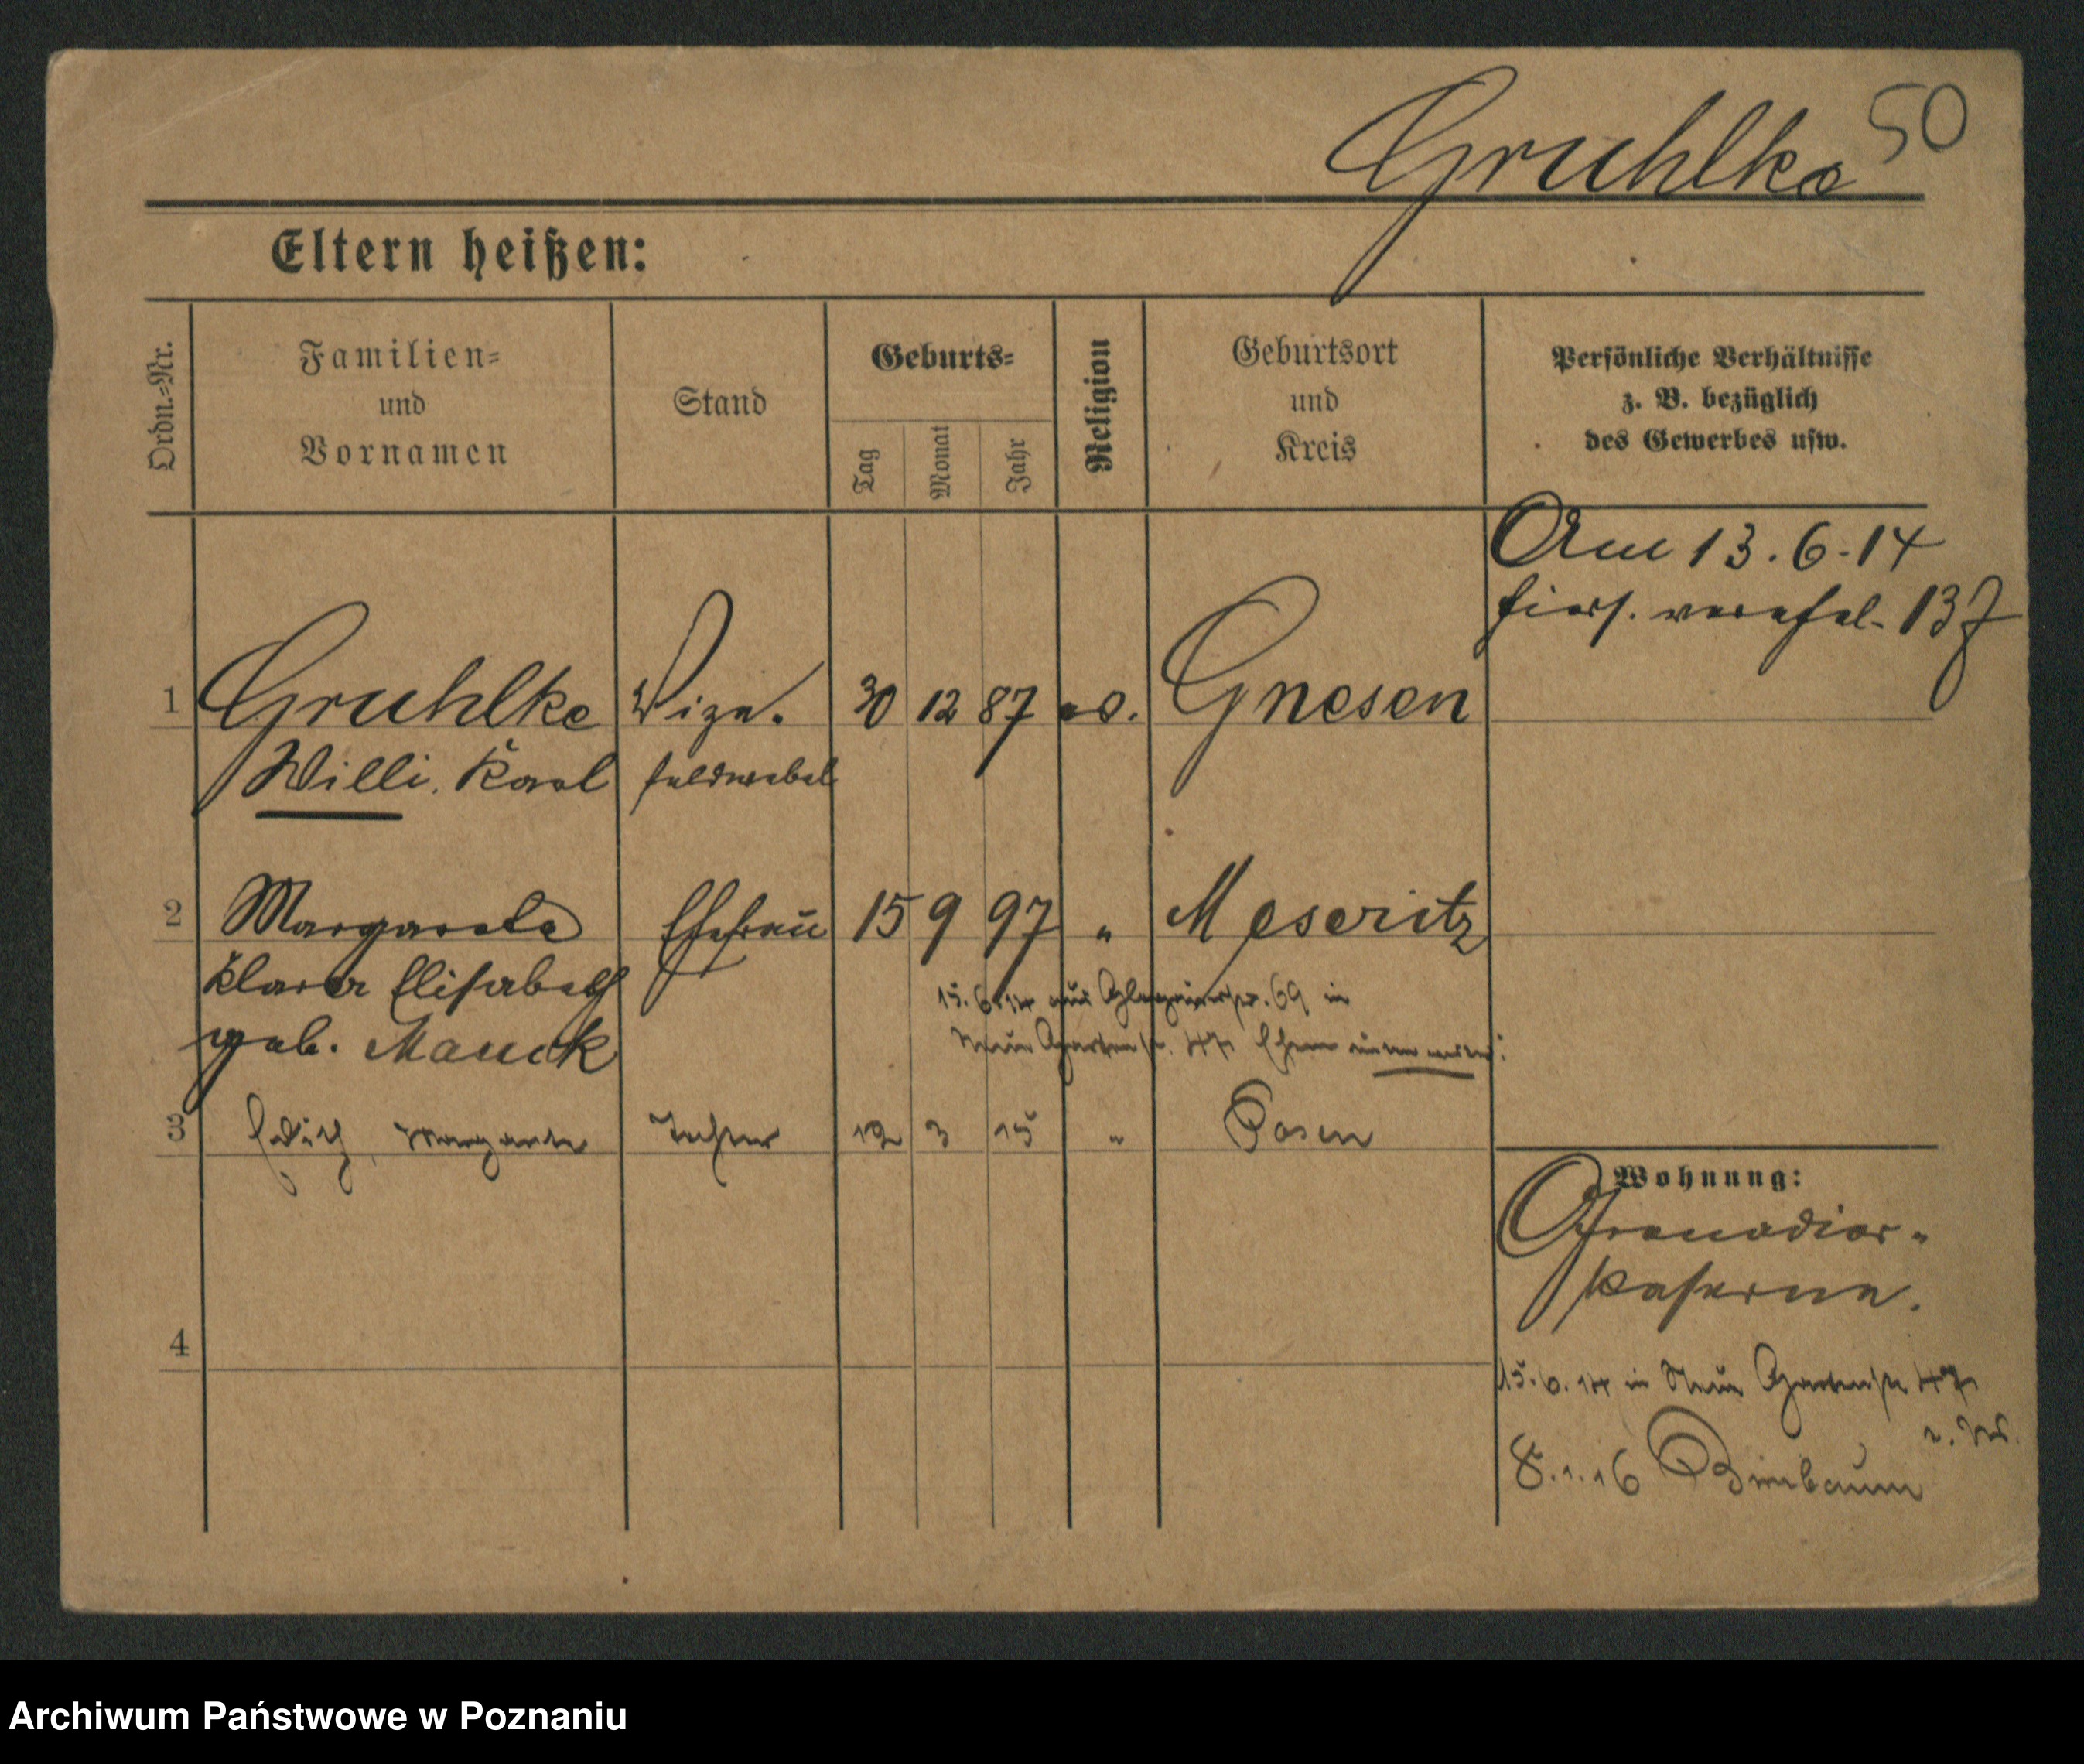 50
Gruhlke
Eltern heißen:
Ordn.-Nr.
Familien-
und
Vornamen
Stand
Geburts-
Tag
Monat
Jahr
Religion
Geburtsort
und
Kreis
Persönliche Verhältnisse
z. B. bezüglich
des Gewerbes usw.
Am 13.6.14
hiers. verehel. 137
1 Gruhlke Vize- 30 12 87 ev. Gnesen
Willi Karl feldwebel
2 Margarete Ehefrau 15 9 97 " Meseritz
Klara Elisabeth
15. 6. 14 aus 69 in
geb. Mauck
Neue Gartenstr. 47
3 Edith, Margarete Tochter 12 3 15 " Posen
Wohnung:
Grenadier-
kaserne.
4
15.6.14 in Neue Gartenstr 47
8.1.16 Birnbaum
Archiwum Państwowe w Poznaniu